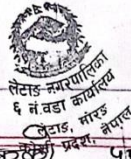 लेटाङ नगरपालिका
६ नं.वडा कार्यालय
लेटाङ, मोरङ
प्रदेश, नेपाल